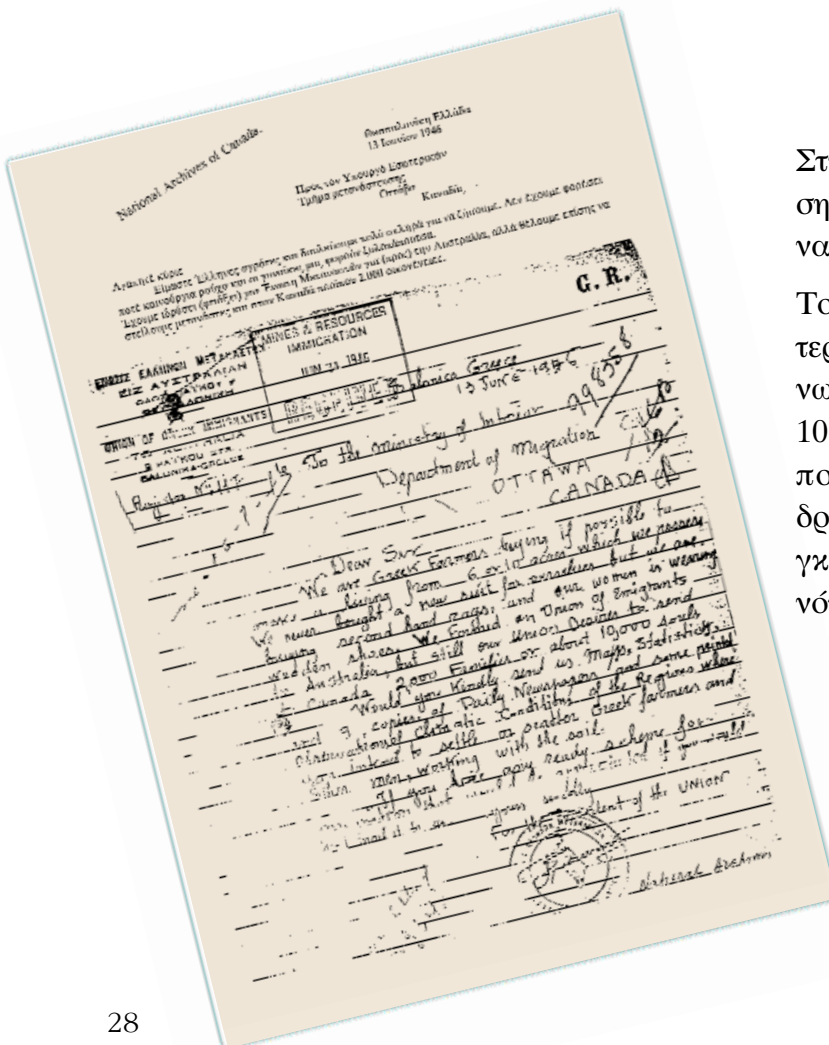 National Archives of Canada.
Θεσσαλονίκη Ελλάδα
13 Ιουνίου 1946
Προς τον Υπουργό Εσωτερικών
Τμήμα μετανάστευσης
Οττάβα
Καναδάς,
Αγαπητέ κύριε
Είμαστε Έλληνες αγρότες και δουλεύουμε πολύ σκληρά για να ζήσουμε. Δεν έχουμε φορέσει
ποτέ καινούργια ρούχα και οι γυναίκες μας φορούν ξυλοπάπουτσα.
Έχουμε ιδρύσει (φτιάξει) για (προς) την Αυστραλία, αλλά θέλουμε επίσης να
στείλουμε μετανάστες και στον Καναδά περίπου 2.000 οικογένειες.
G. R.
ΕΝΩΣΙΣ ΕΛΛΗΝΩΝ
ΕΙΣ ΑΥΣΤΡΑΛΙΑΝ
MINES & RESOURCES
IMMIGRATION
UNION OF GREEK IMMIGRANTS
TO AUSTRALIA
SALONIKA-GREECE
Salonica Greece
13 JUNE
998358
To the Ministry of Interior
Department of Migration
OTTAWA
CANADA
Dear Sir
We are Greek Farmers trying if possible to
make a living from 6 or 10 acres which we possess
We never bought a new suit for ourselves but we are
buying second hand rags, and our women is wearing
wooden shoes. We Formed an Union of Emigrants
to Australia, but still our Union Desires to send
to Canada 2,000 Families or about 10,000 souls
Would you Kindly send us Maps, Statistics,
and copies of Daily Newspapers and some
Climatic Conditions of the Regions where
you intend to settle Greek farmers and
men working with the soil.
If you have any ready scheme for
if you could
mail it to
yours
For the President of the UNION
National Archives
Στ
ση
να
Το
τερ
νω
10
πο
δρ
γκ
νό
28